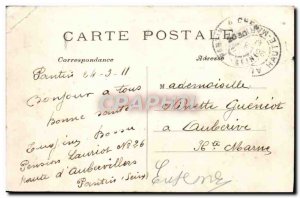 CARTE POSTALE
Correspondance
Adresse
Pantin 24-3-11
Bonjour à tous
bonne santé
Eugène Bossu
Pension Lauriot No 26
Route d'Aubervilliers
Pantin (Seine)
Mademoiselle
Guéniot
à Aubérive
Hte Marne